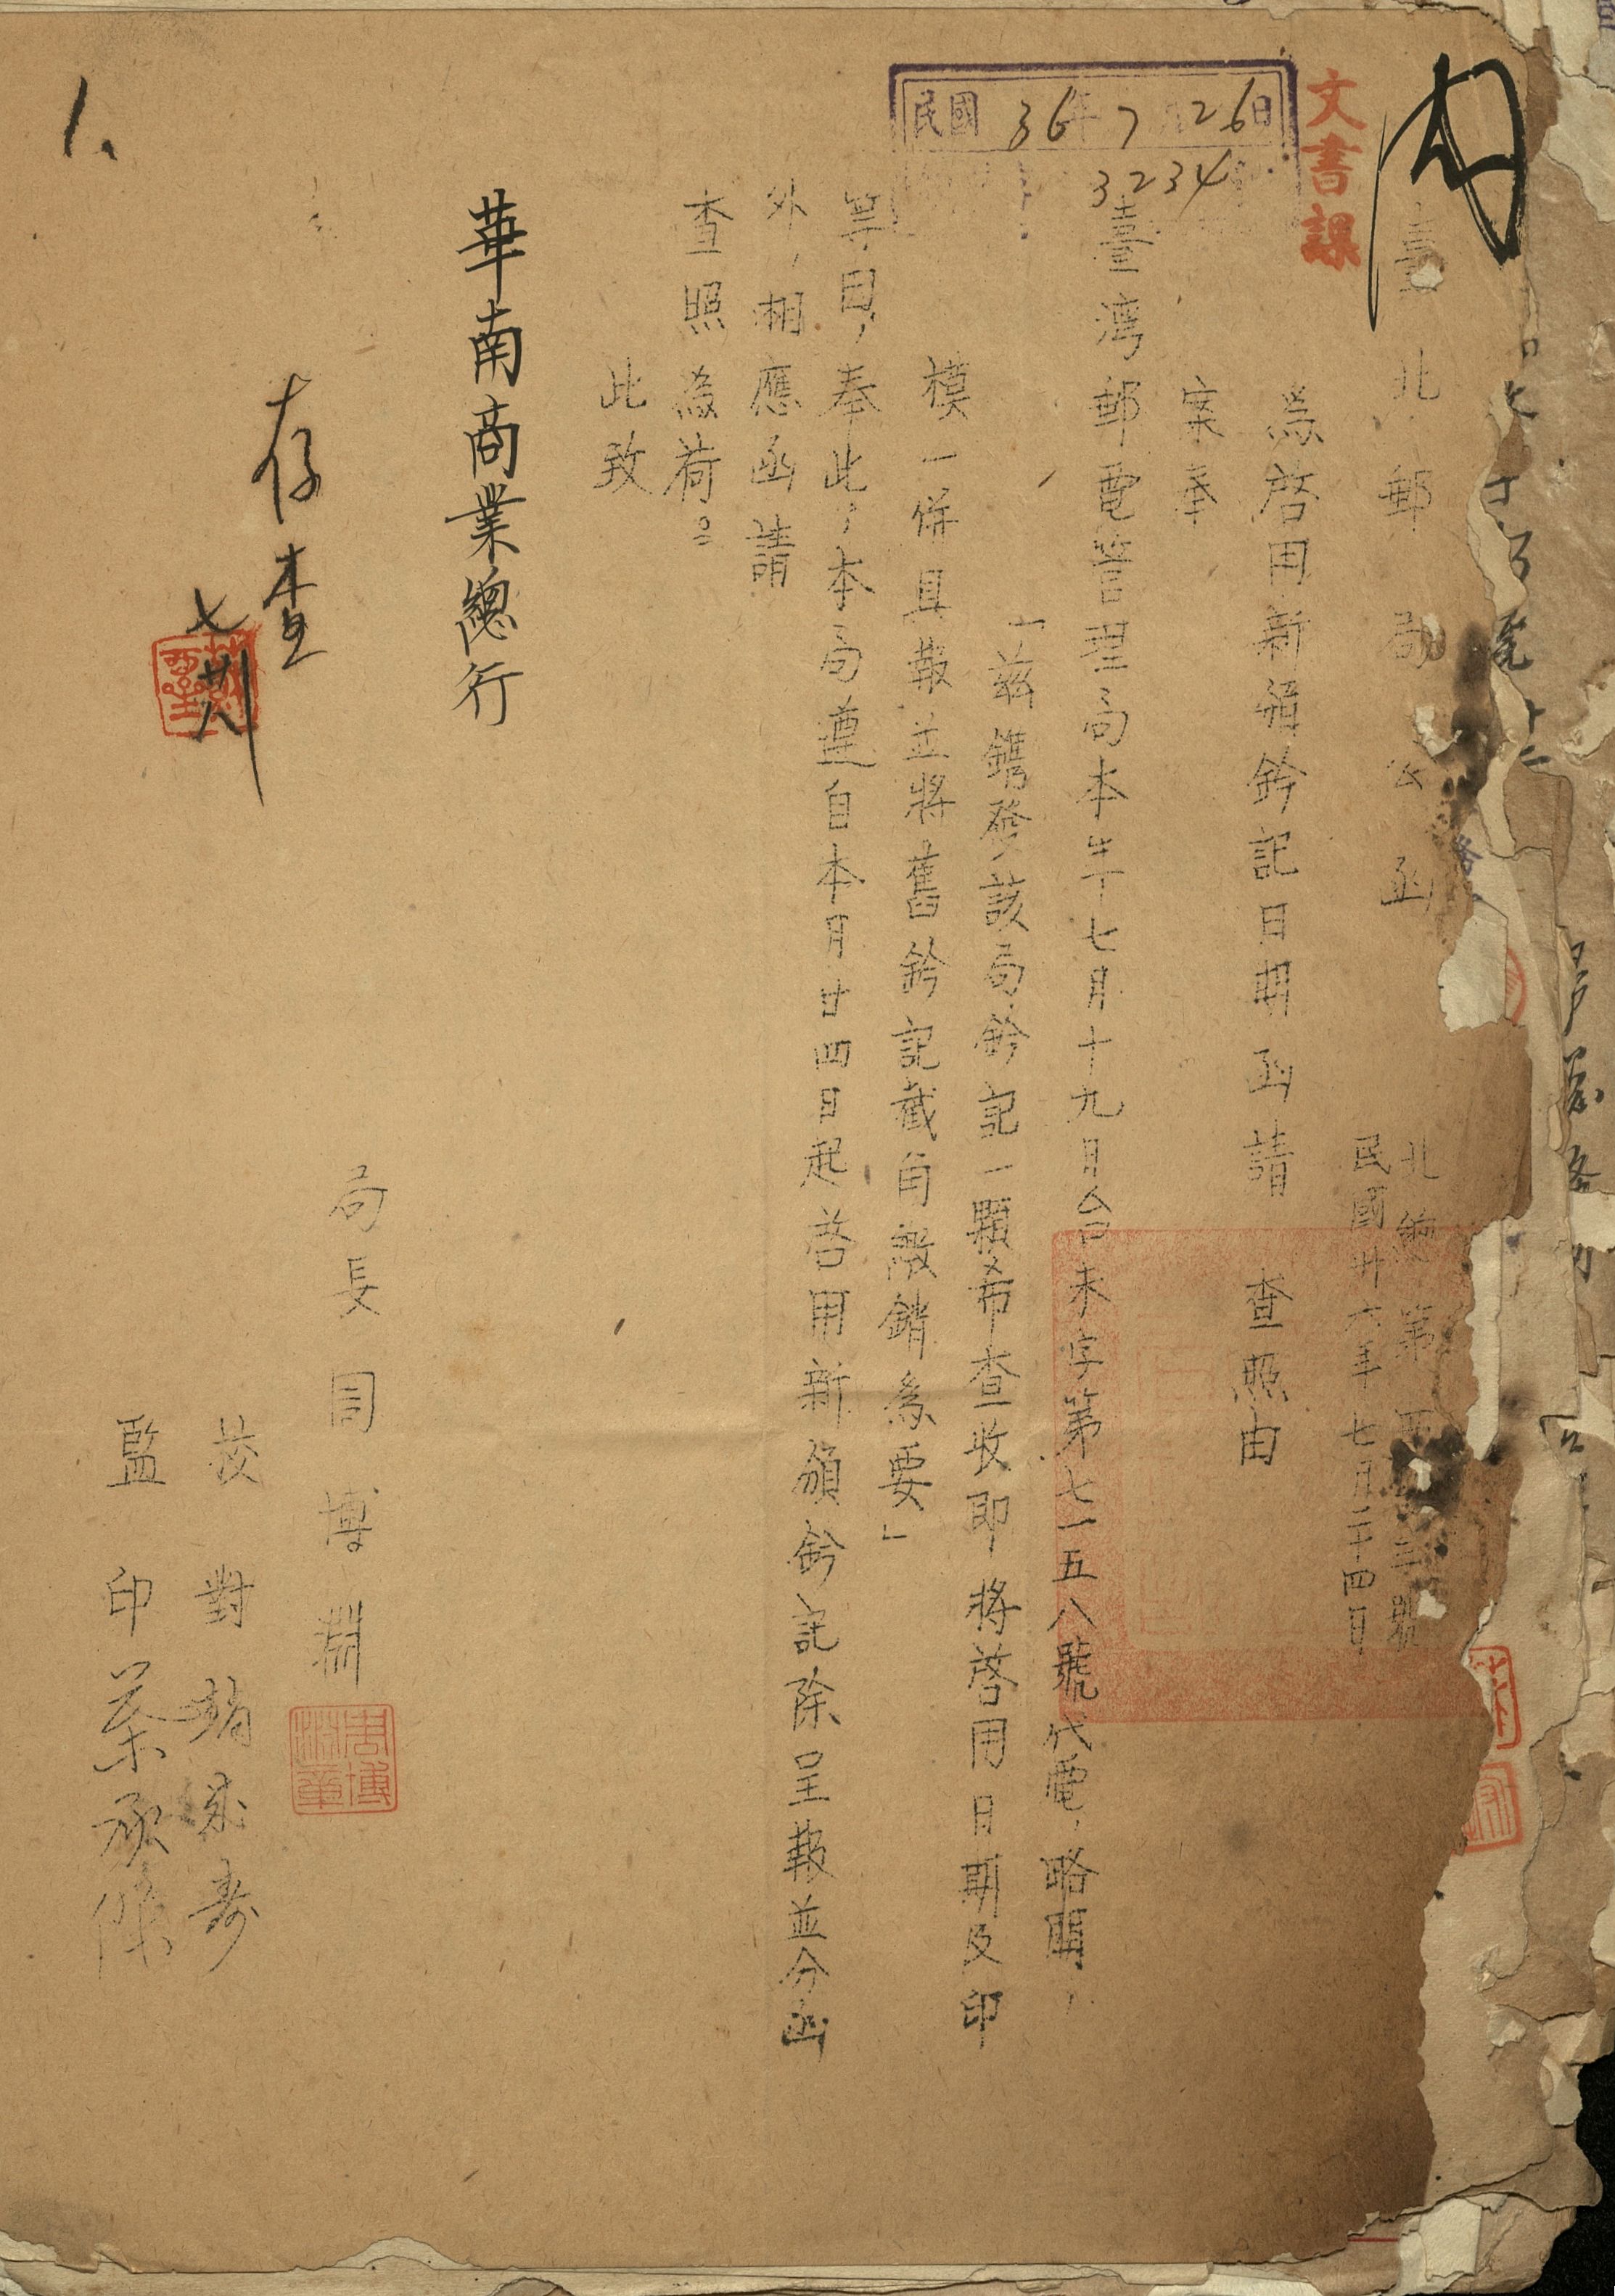 內
文書課
民國36年7月26日
3234
臺北郵局公函
北總 第
民國卅六年七月二十四日
為啓用新頒鈐記日期函請 查照由
案奉
臺灣郵電管理局本年七月十九日台未字第七一五八號代電，略開，
「茲鐫發該局鈐記一顆希查收即將啓用日期及印
模一併具報並將舊鈐記截角繳銷為要」
等因，奉此，本局遵自本月廿四日起啓用新頒鈐記除呈報並分函
外，相應函請
查照為荷。
此致
華南商業總行
局長周博淵
周博淵章
存查
七
校對
監印
1、